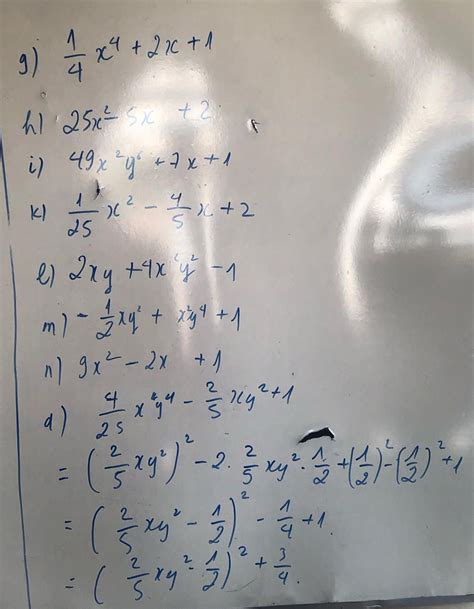 g) 1/4 x⁴ + 2x + 1
h) 25x² - 5x + 2
i) 49x²y⁶ + 7x + 1
k) 1/25 x² - 4/5 x + 2
l) 2xy + 4x²y² - 1
m) - 1/2 xy² + x²y⁴ + 1
n) 9x² - 2x + 1
d) 4/25 x²y⁴ - 2/5 xy² + 1
= (2/5 xy²)² - 2 · 2/5 xy² · 1/2 + (1/2)² - (1/2)² + 1
= (2/5 xy² - 1/2)² - 1/4 + 1.
= (2/5 xy² - 1/2)² + 3/4.